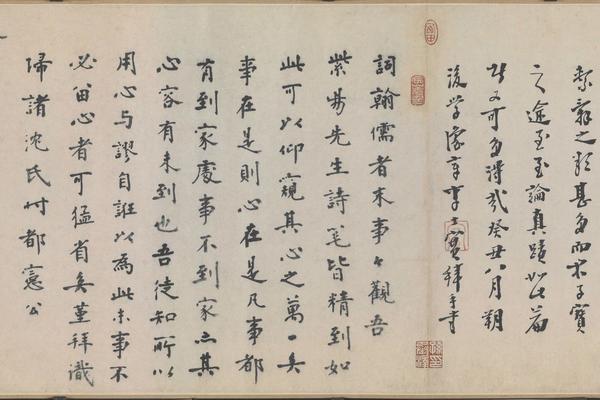 翁之甚多而子寶
之途至至論真蹟如此篇
又可多得哉癸丑八月朔
後學豫章李士實拜手書
詞翰儒者末事々觀吾
紫陽先生詩筆皆精到如
此可以仰窺其心之萬一矣
事在是則心在是凡事都
有到家處事不到家亦其
心容有未到也吾徒知所以
用心与謬自誑以為此末事不
必留心者可猛省矣堇拜識
歸諸沈氏時都憲公